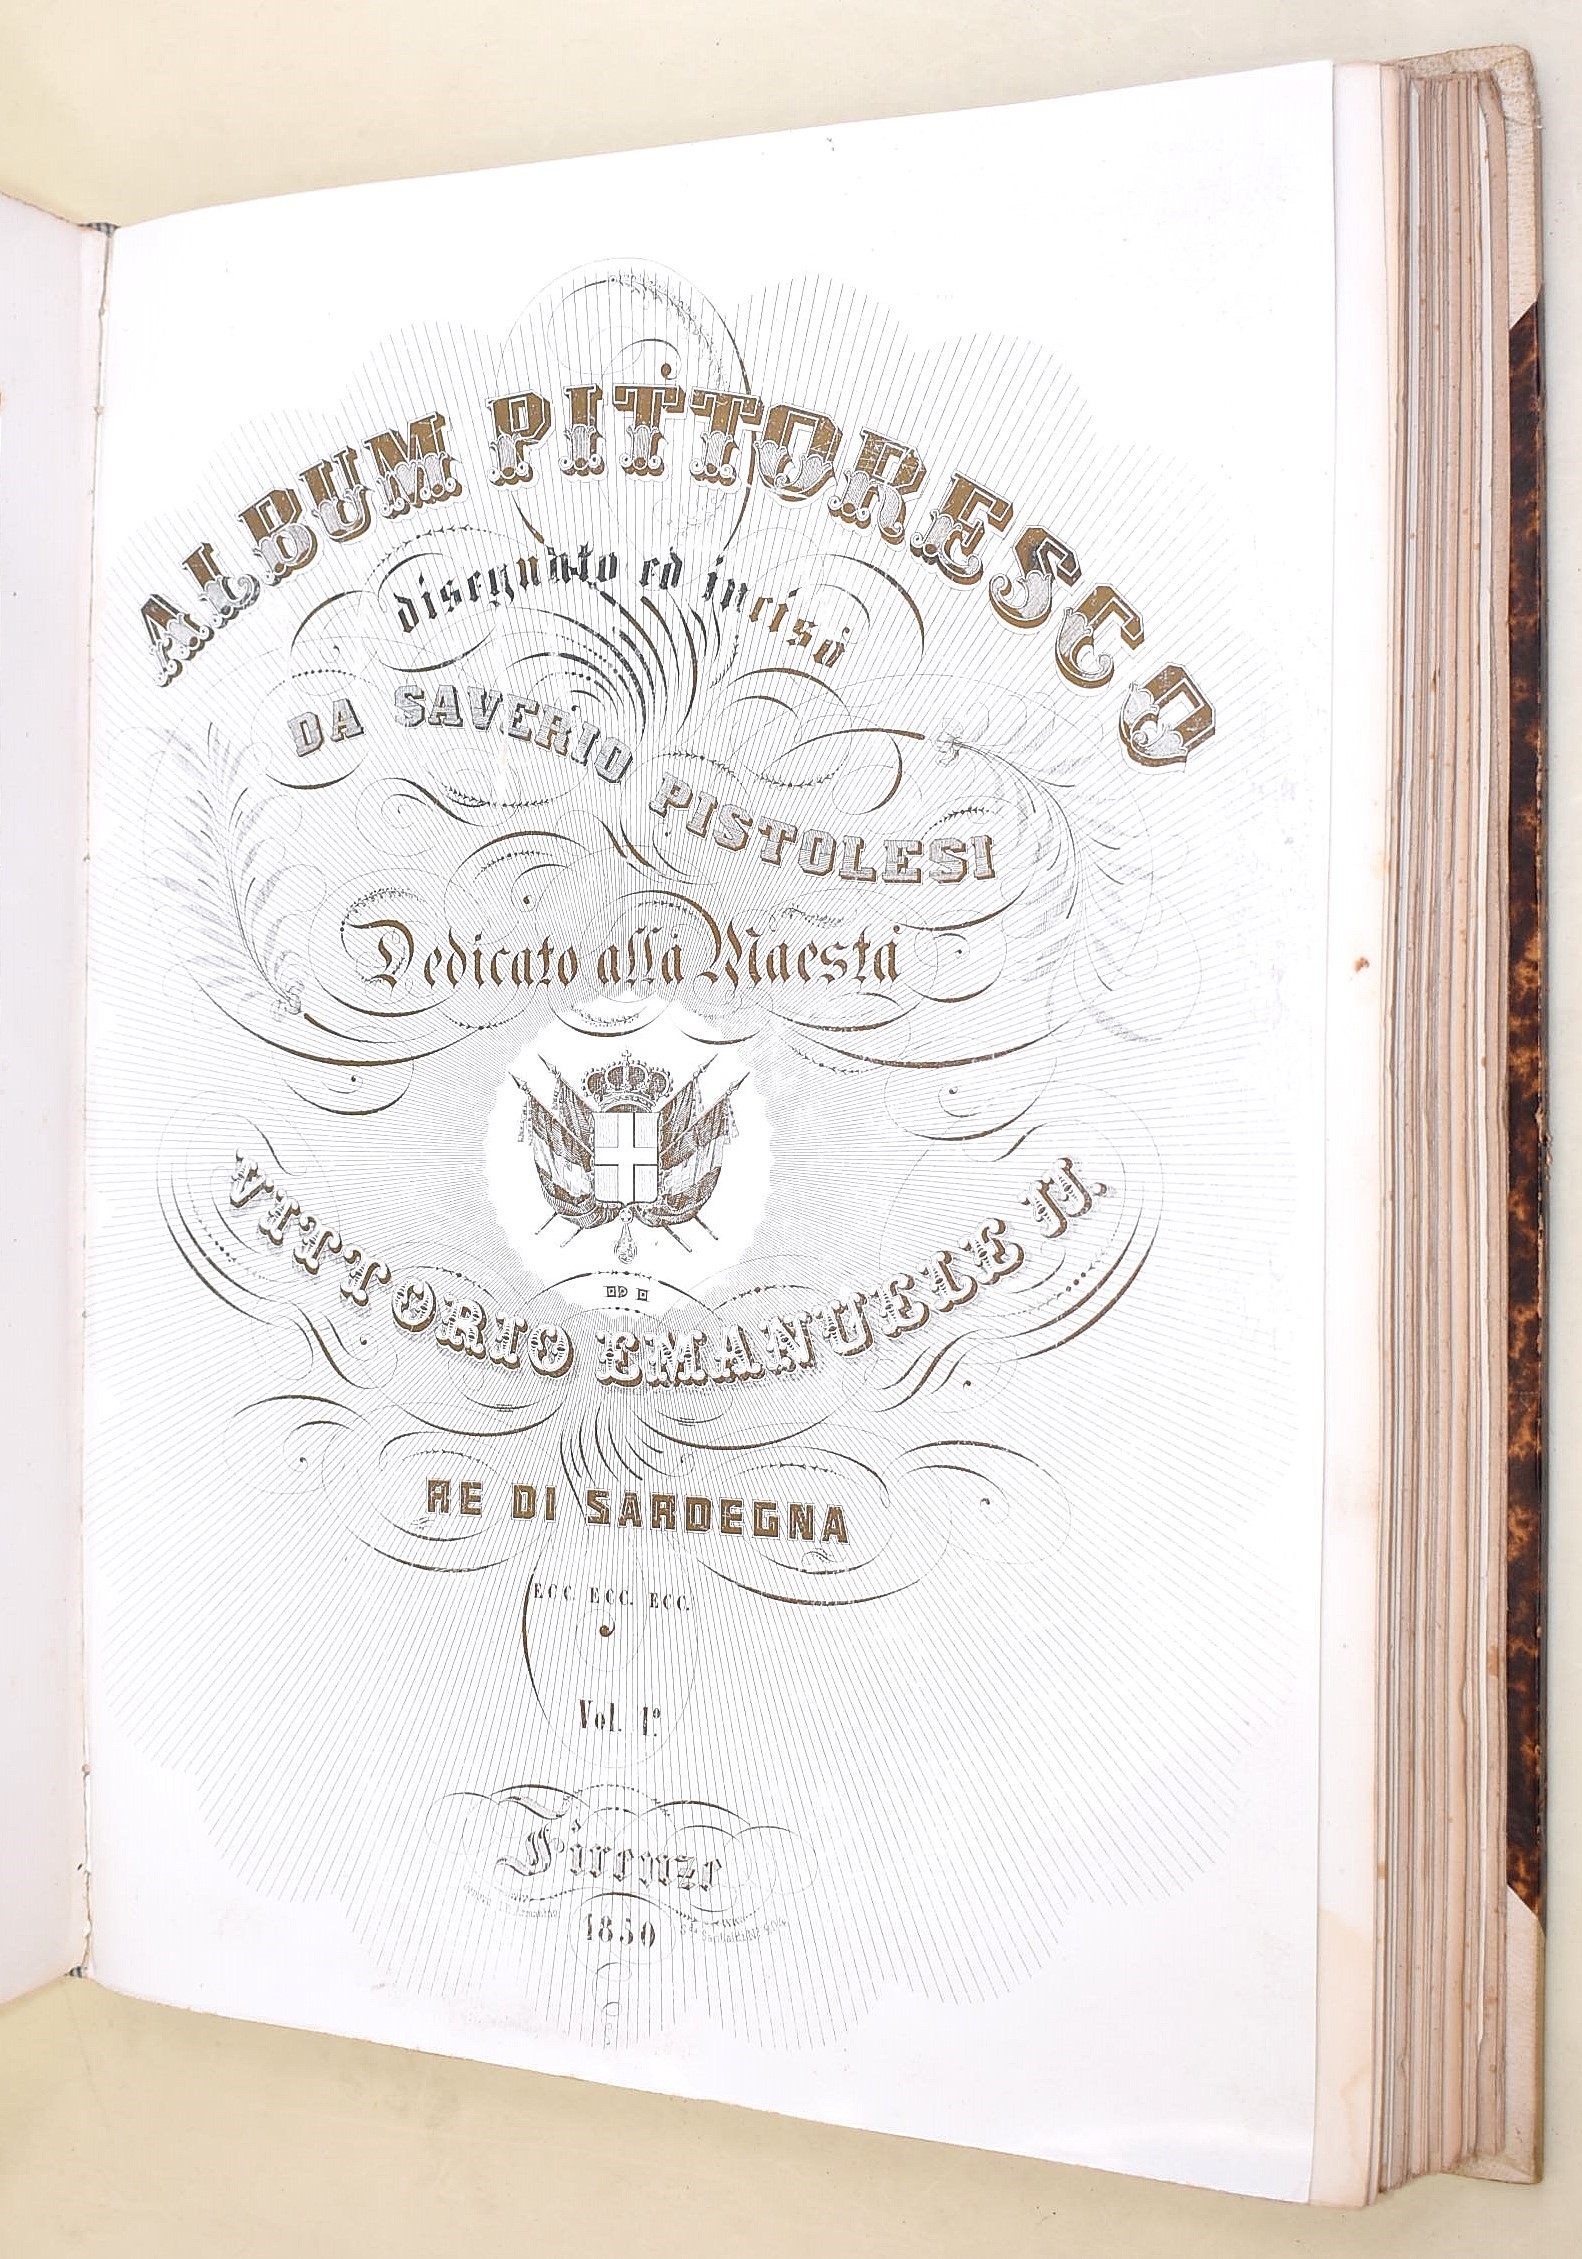 ALBUM PITTORESCO
disegnato ed inciso
DA SAVERIO PISTOLESI
Dedicato alla Maestà
VITTORIO EMANUELE II.
RE DI SARDEGNA
ECC. ECC. ECC.
Vol. I.º
Firenze
1850